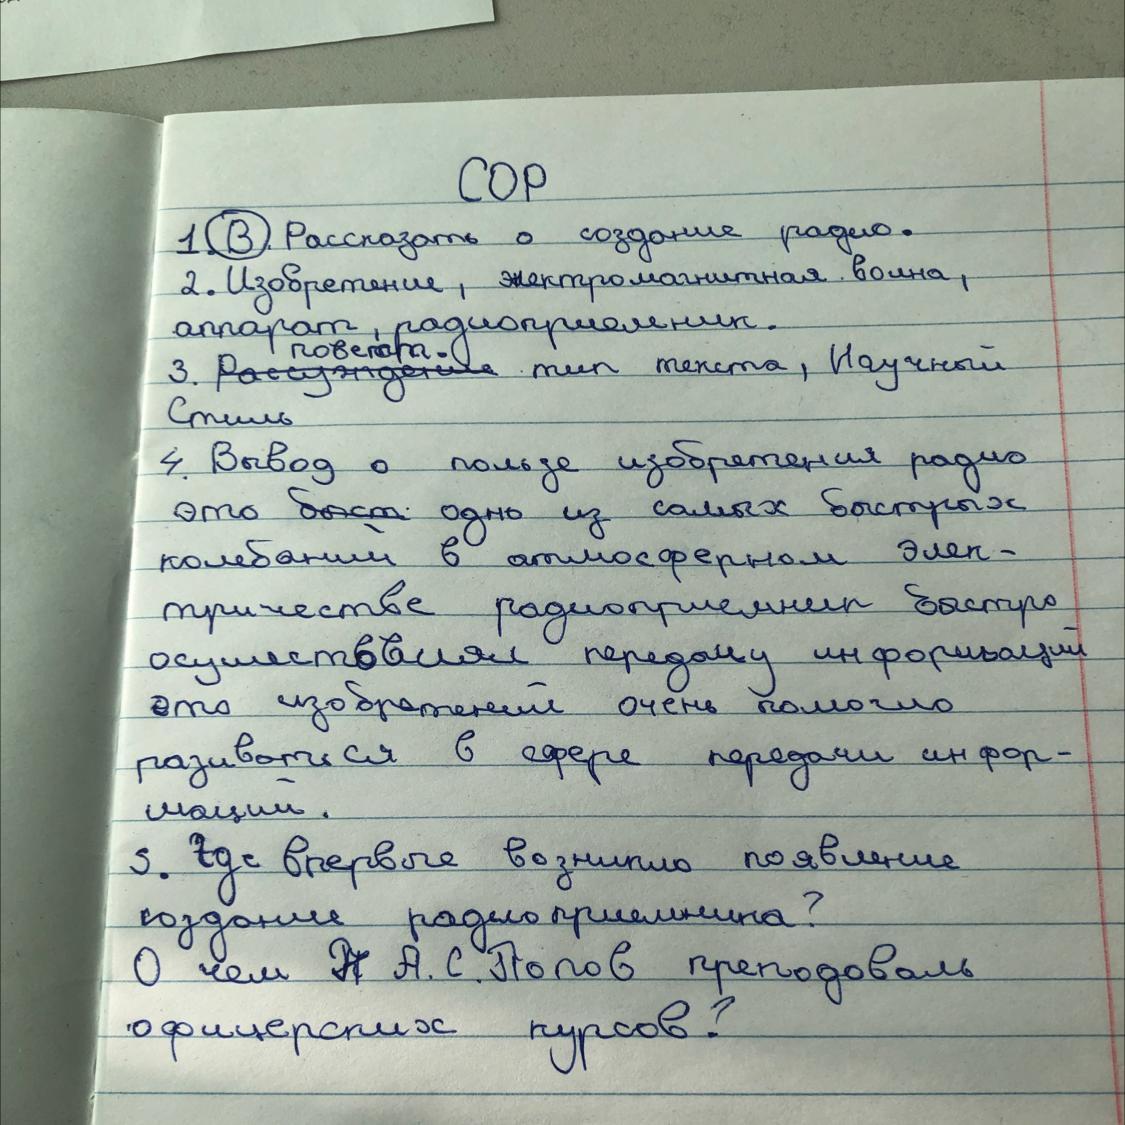 СОР
1. В. Рассказать о создание радио.
2. Изобретение, электромагнитная волна,
аппарат, радиоприемник.
повеств.
3. Рассуждение тип текста, Научный
Стиль
4. Вывод о пользе изобретения радио
это быст одно из самых быстрых
колебаний в атмосферном элек-
тричестве радиоприемник быстро
осуществлял передачу информаций
это изобретений очень помогло
развиваться в сфере передачи инфор-
маций.
5. Где впервые возникло появление
создание радиоприемника?
О чем А.С.Попов преподоваль
офицерских курсов?